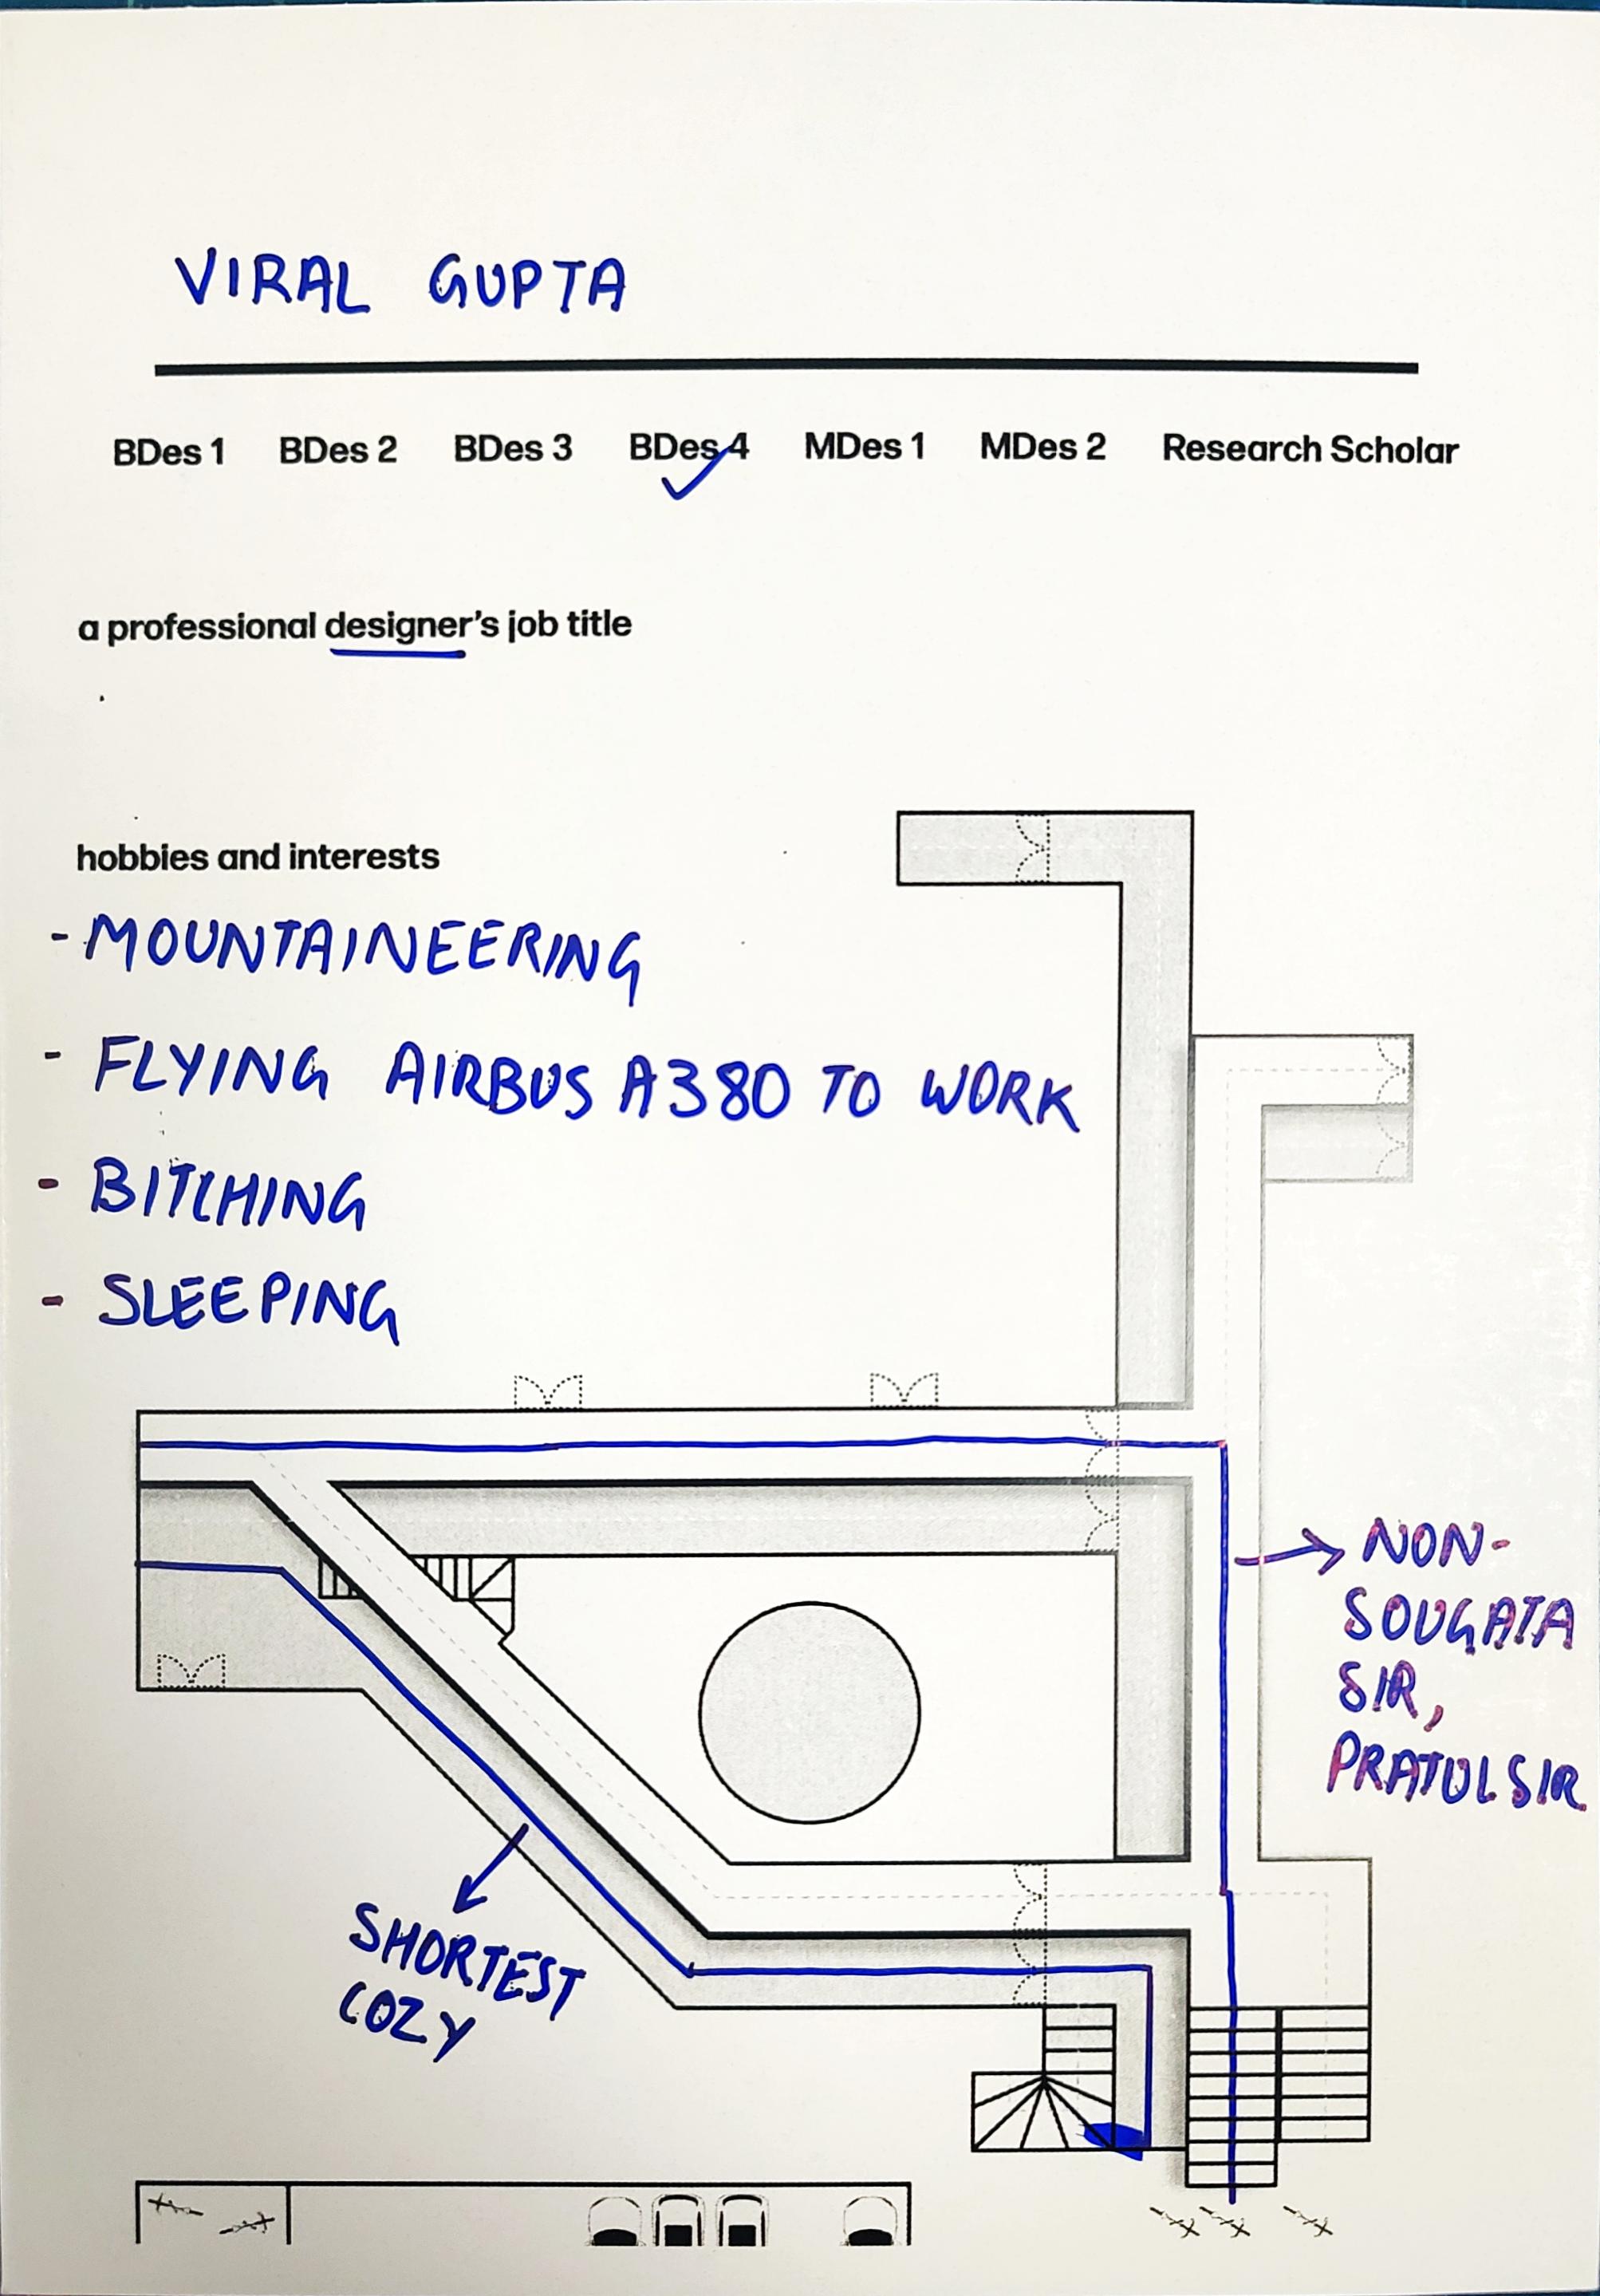 VIRAL GUPTA
BDes 1 BDes 2 BDes 3 BDes 4 MDes 1 MDes 2 Research Scholar
a professional designer's job title
hobbies and interests
- MOUNTAINEERING
- FLYING AIRBUS A380 TO WORK
- BITCHING
- SLEEPING
NON-
SOUGATA
SIR,
PRATUL SIR
SHORTEST
COZY